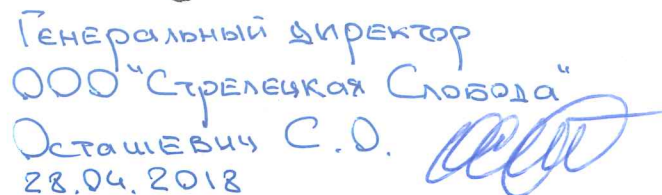 Генеральный директор
ООО "Стрелецкая Слобода"
Осташевич С.О.
28.04.2018